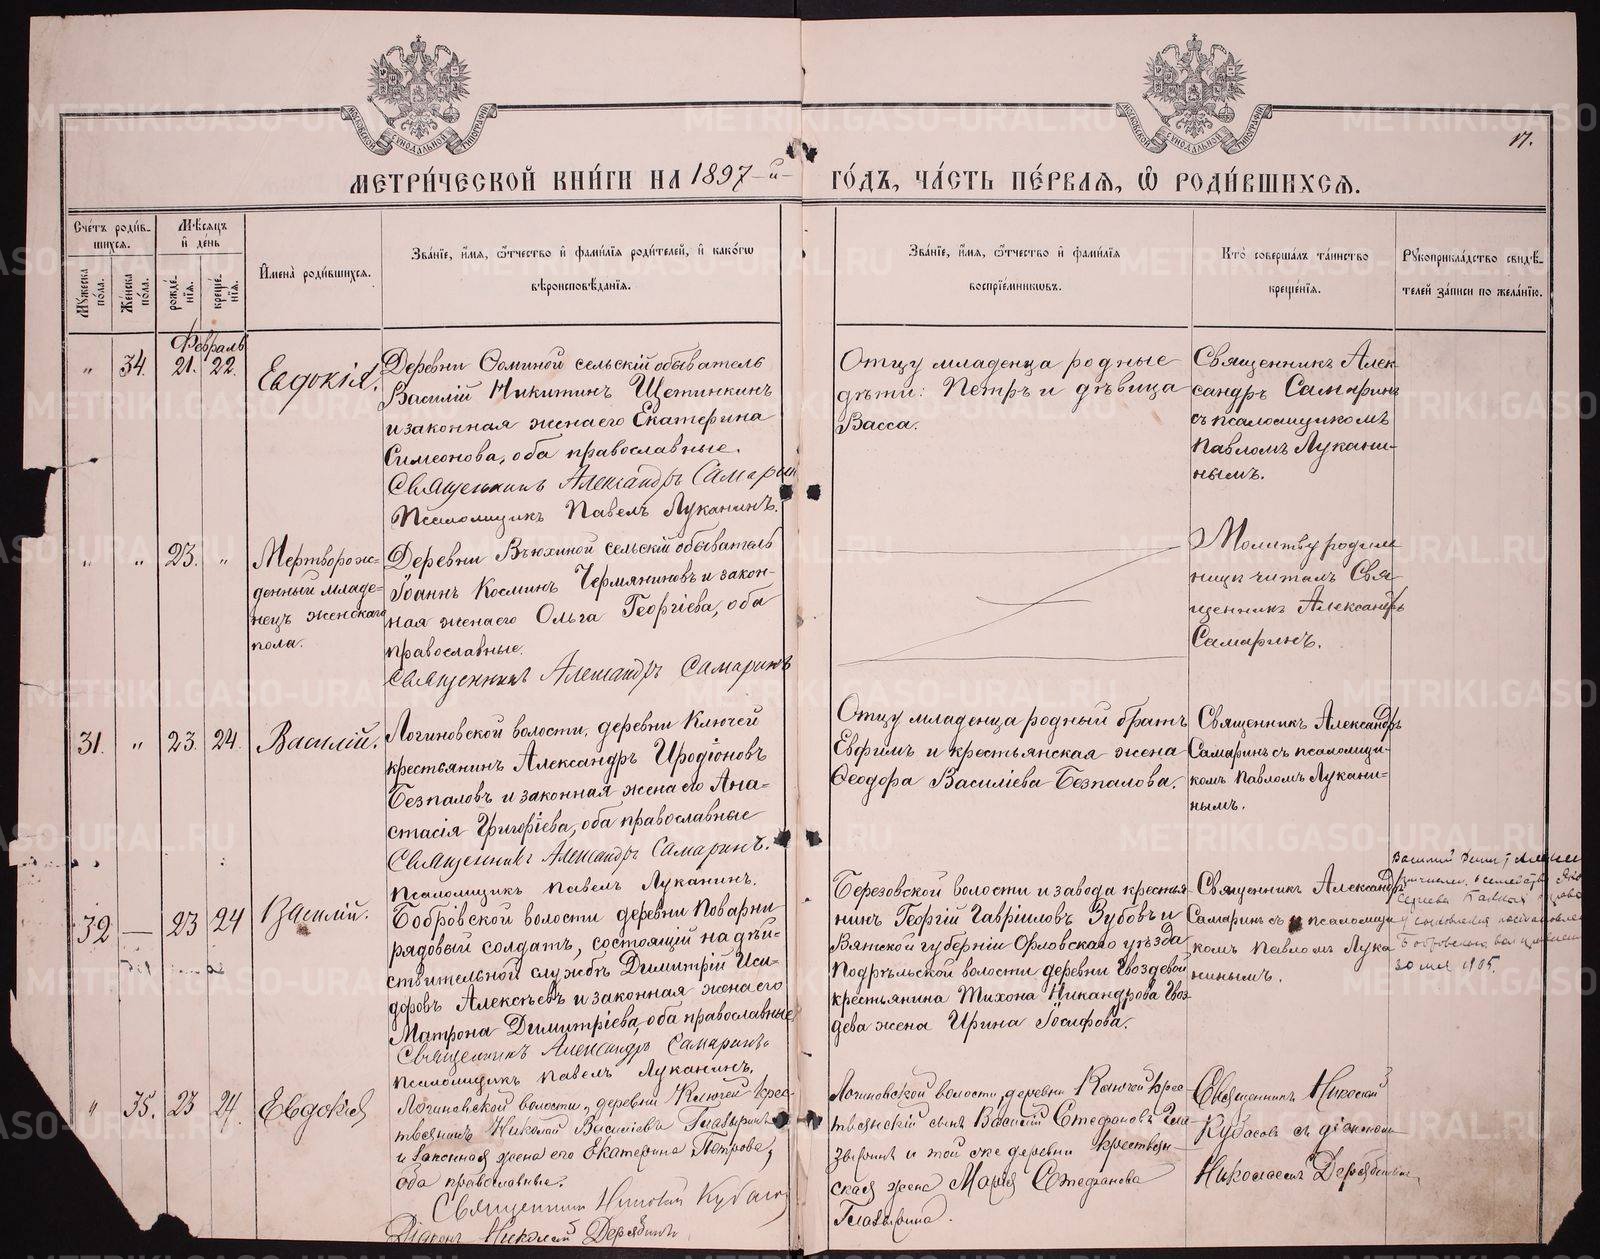 МЕТРИ́ЧЕСКОЙ КНИ́ГИ НА 1897-й- ГО́ДЪ, ЧА́СТЬ ПЕ́РВАЯ, Ѡ РОДИ́ВШИХСЯ.
17.
МОСКОВСКОЙ СѴНОДАЛЬНОЙ ТИПОГРАФІИ
МОСКОВСКОЙ СѴНОДАЛЬНОЙ ТИПОГРАФІИ
Сче́тъ роди́в-
шихся.
Мꙋ́жеска по́ла.
Же́нска по́ла.
Мѣ́сяцъ
и҆ де́нь
рожде́-
нїя.
креще́-
нїя.
И҆мена̀ роди́вшихся.
Зва́нїе, и҆́мя, ѻ҆́тчество и҆ фами́лїя роди́телей, и҆ како́гѡ
вѣроисповѣ́данїя.
Зва́нїе, и҆́мя, ѻ҆́тчество и҆ фами́лїя
воспрїе́мникѡвъ.
Кто̀ соверша́лъ та́инство
креще́нїя.
Рꙋкоприкла́дство свидѣ́-
телей за́писи по жела́нїю.
Февраль
" 34. 21. 22.
Евдокія.
Деревни Соминой сельскій обыватель
Василій Никитинъ Щетинкинъ
и законная жена его Екатерина
Симеонова, оба православные.
Священникъ Александръ Самаринъ
Псаломщикъ Павелъ Луканинъ.
Отцу младенца родные
дѣти: Петръ и дѣвица
Васса.
Священникъ Алек-
сандръ Самаринъ
съ псаломщикомъ
Павломъ Лукани-
нымъ.
" " 23. "
Мертворож-
денный младе-
нецъ женскаго
пола.
Деревни Вьюхиной сельскій обыватель
Іоаннъ Косминъ Чермяниновъ и закон-
ная жена его Ольга Георгіева, оба
православные.
Священникъ Александръ Самаринъ
Молитву родиль-
ницѣ читалъ Свя-
щенникъ Александръ
Самаринъ.
31. " 23. 24.
Василій.
Логиновской волости, деревни Ключей
крестьянинъ Александръ Иродіоновъ
Безпаловъ и законная жена его Ана-
стасія Григоріева, оба православные
Священникъ Александръ Самаринъ.
Псаломщикъ Павелъ Луканинъ.
Отцу младенца родный братъ
Евфимъ и крестьянская жена
Ѳеодора Василіева Безпалова.
Священникъ Александръ
Самаринъ съ псаломщи-
комъ Павломъ Лукани-
нымъ.
32 — 23 24
Василій.
Бобровской волости деревни Поварни
рядовый солдатъ, состоящій на дѣй-
ствительной службѣ Димитрій Иси-
доровъ Алексѣевъ и законная жена его
Матрона Димитріева, оба православные
Священникъ Александръ Самаринъ
Псаломщикъ Павелъ Луканинъ.
Березовской волости и завода крестья-
нинъ Георгій Гавріиловъ Зубовъ и
Вятской губерніи Орловскаго уѣзда
Подрѣльской волости деревни Гвоздевой
крестьянина Тихона Никандрова Гвоз-
дева жена Ирина Іосифова.
Священникъ Александръ
Самаринъ съ псаломщи-
комъ Павломъ Лука-
нинымъ.
Василій
Бобровскаго
30 мая 1905.
" 35. 23 24.
Евдокія
Логиновской волости, деревни Ключей крес-
тьянинъ Николай Василіевъ Глазыринъ
и законная жена его Екатерина Петрова,
оба православные.
Священникъ Николай Кубасов
Діаконъ Николай Дерябинъ
Логиновской волости, деревни Ключей крес-
тьянскій сынъ Василій Стефановъ Гла-
зыринъ и той же деревни крестьян-
ская жена Марія Стефанова
Глазырина.
Священникъ Николай
Кубасовъ съ діакономъ
Николаемъ Дерябинымъ
METRIKI.GASO-URAL.RU